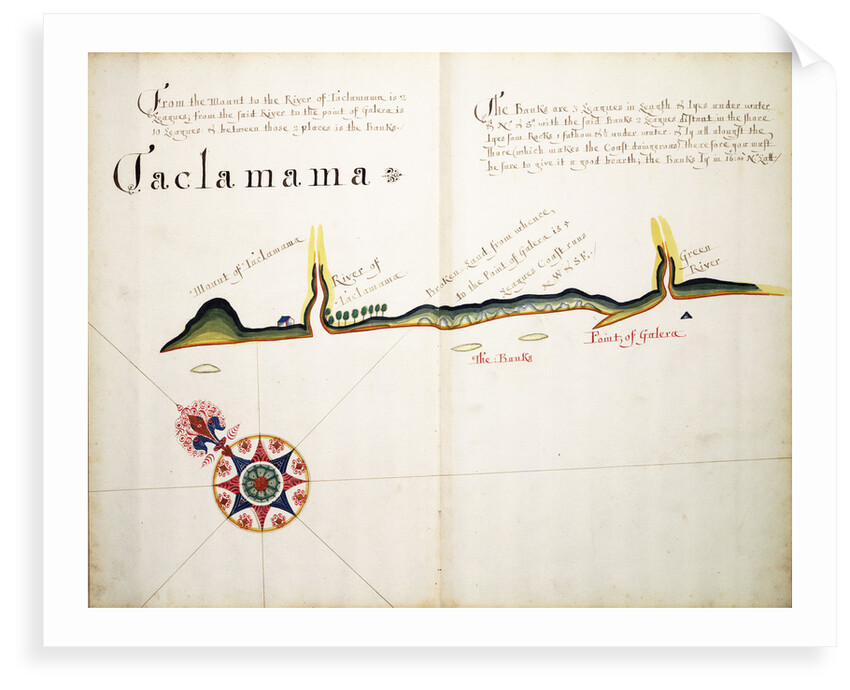 From the Mount to the River of Taclamama is 2
Leagues; from the said River to the point of Galera is
10 Leagues & between those 2 places is the Banks.
Taclamama
The Banks are 3 Leagues in Length & Lyes under water
& No & So with the said Banks 2 Leagues distant in the shore
Lyes som Rocks 1 fathom & ½ under water & Ly all alongst the
Shore (which makes the Coast daingerous) therefore you must
be sure to give it a good bearth; the Banks Ly in 16:00 No Latt
Mount of Taclamama
River of
Taclamama
Broken Land from whence
to the Point of Galera is 4
Leagues Coast runs
N.W & S.E.
Green
River
Point, of Galera
The Banks